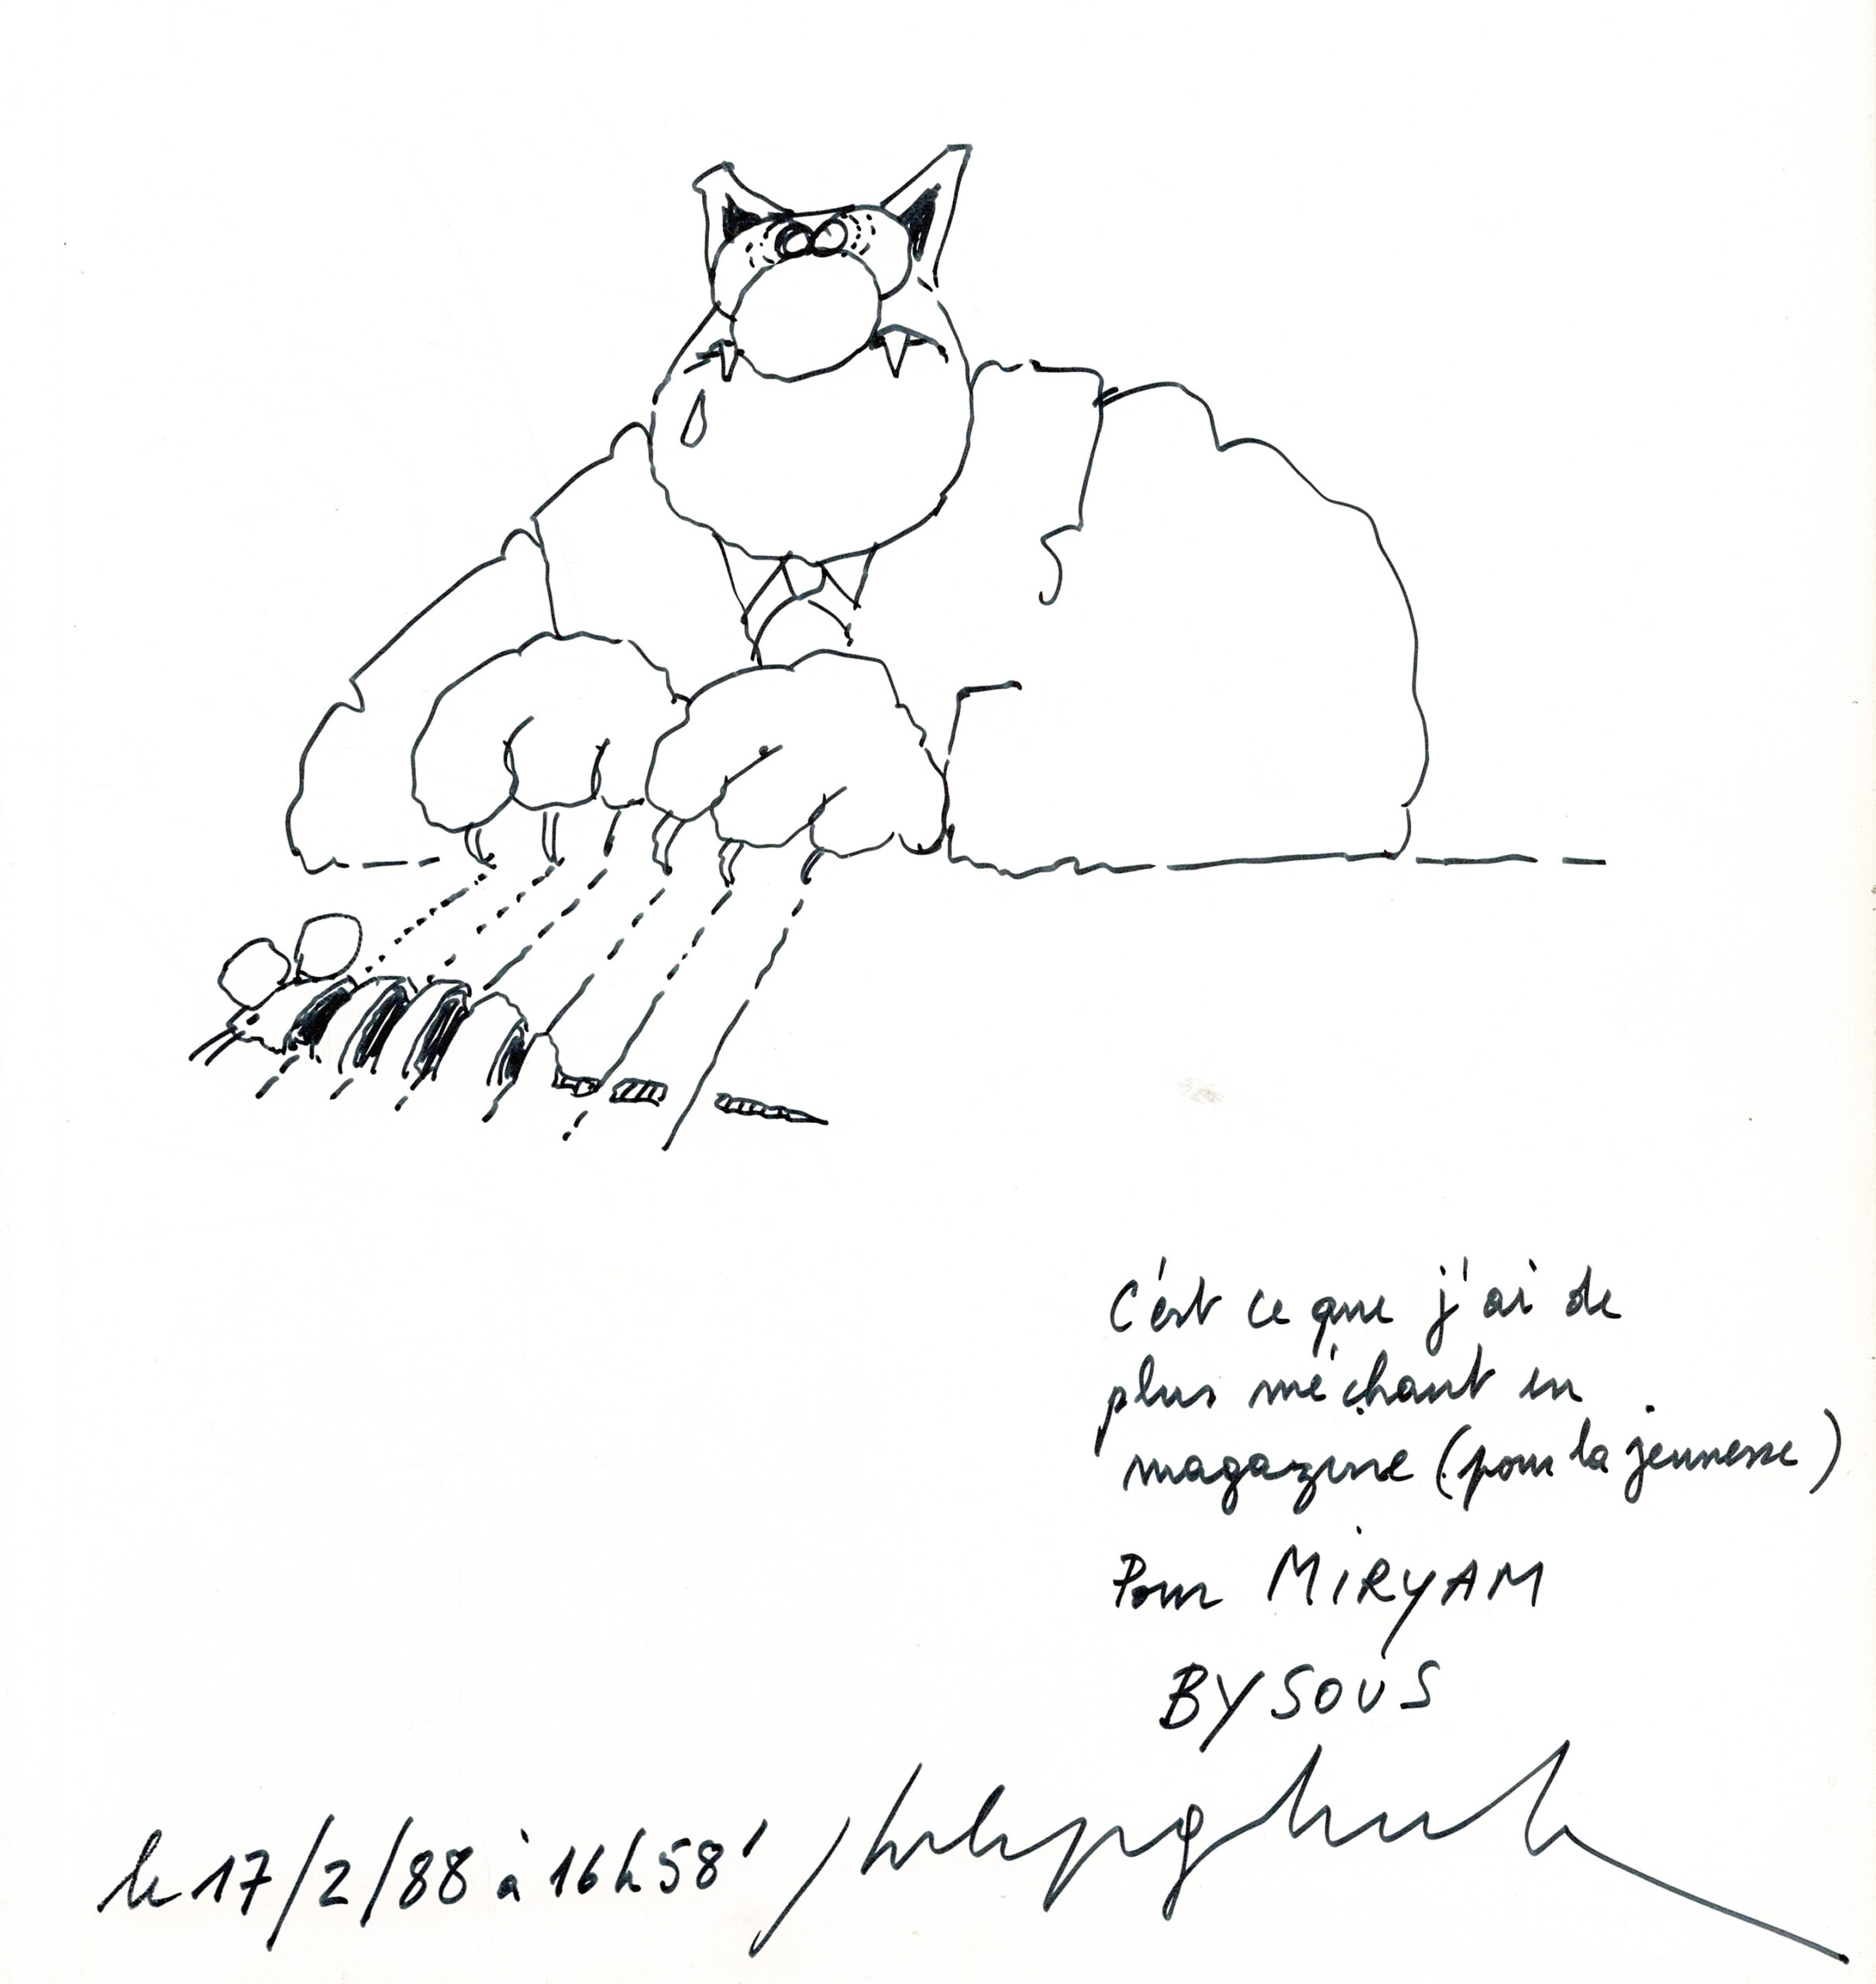 C'est ce que j'ai de
plus méchant en
magazine (pour la jeunesse)
Pour MiRYAM
BYSOUS
le 17/2/88 à 16h58'